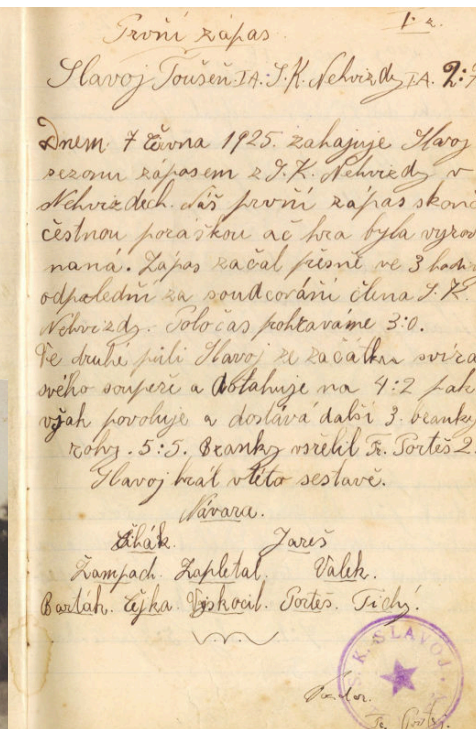 První zápas
I. z.
Slavoj Toušeň IA: S.K. Nehvizdy IA. 2:7
Dnem 7 června 1925. zahajuje Slavoj
sezonu zápasem z S.K. Nehvizdy v
Nehvizdech. Náš první zápas skonč
čestnou porážkou ač hra byla vyrov
naná. Zápas začal přesně ve 3 hod
odpoledni za soudcování člena S.K.
Nehvizdy. Poločas 3:0.
Ve druhé půli Slavoj ze začátku svírá
svého soupeře a dotahuje na 4:2 pak
však povoluje a dostává další 3. branky
rohy. 5:5. Branky vsřelil Fr. Porteš 2.
Slavoj hrál v této sestavě.
Návara.
Čihák. Jareš
Žampach. Zapletal. Valek.
Barták. Čejka. Vyskocil. Porteš. Tichý.
S. K. SLAVOJ